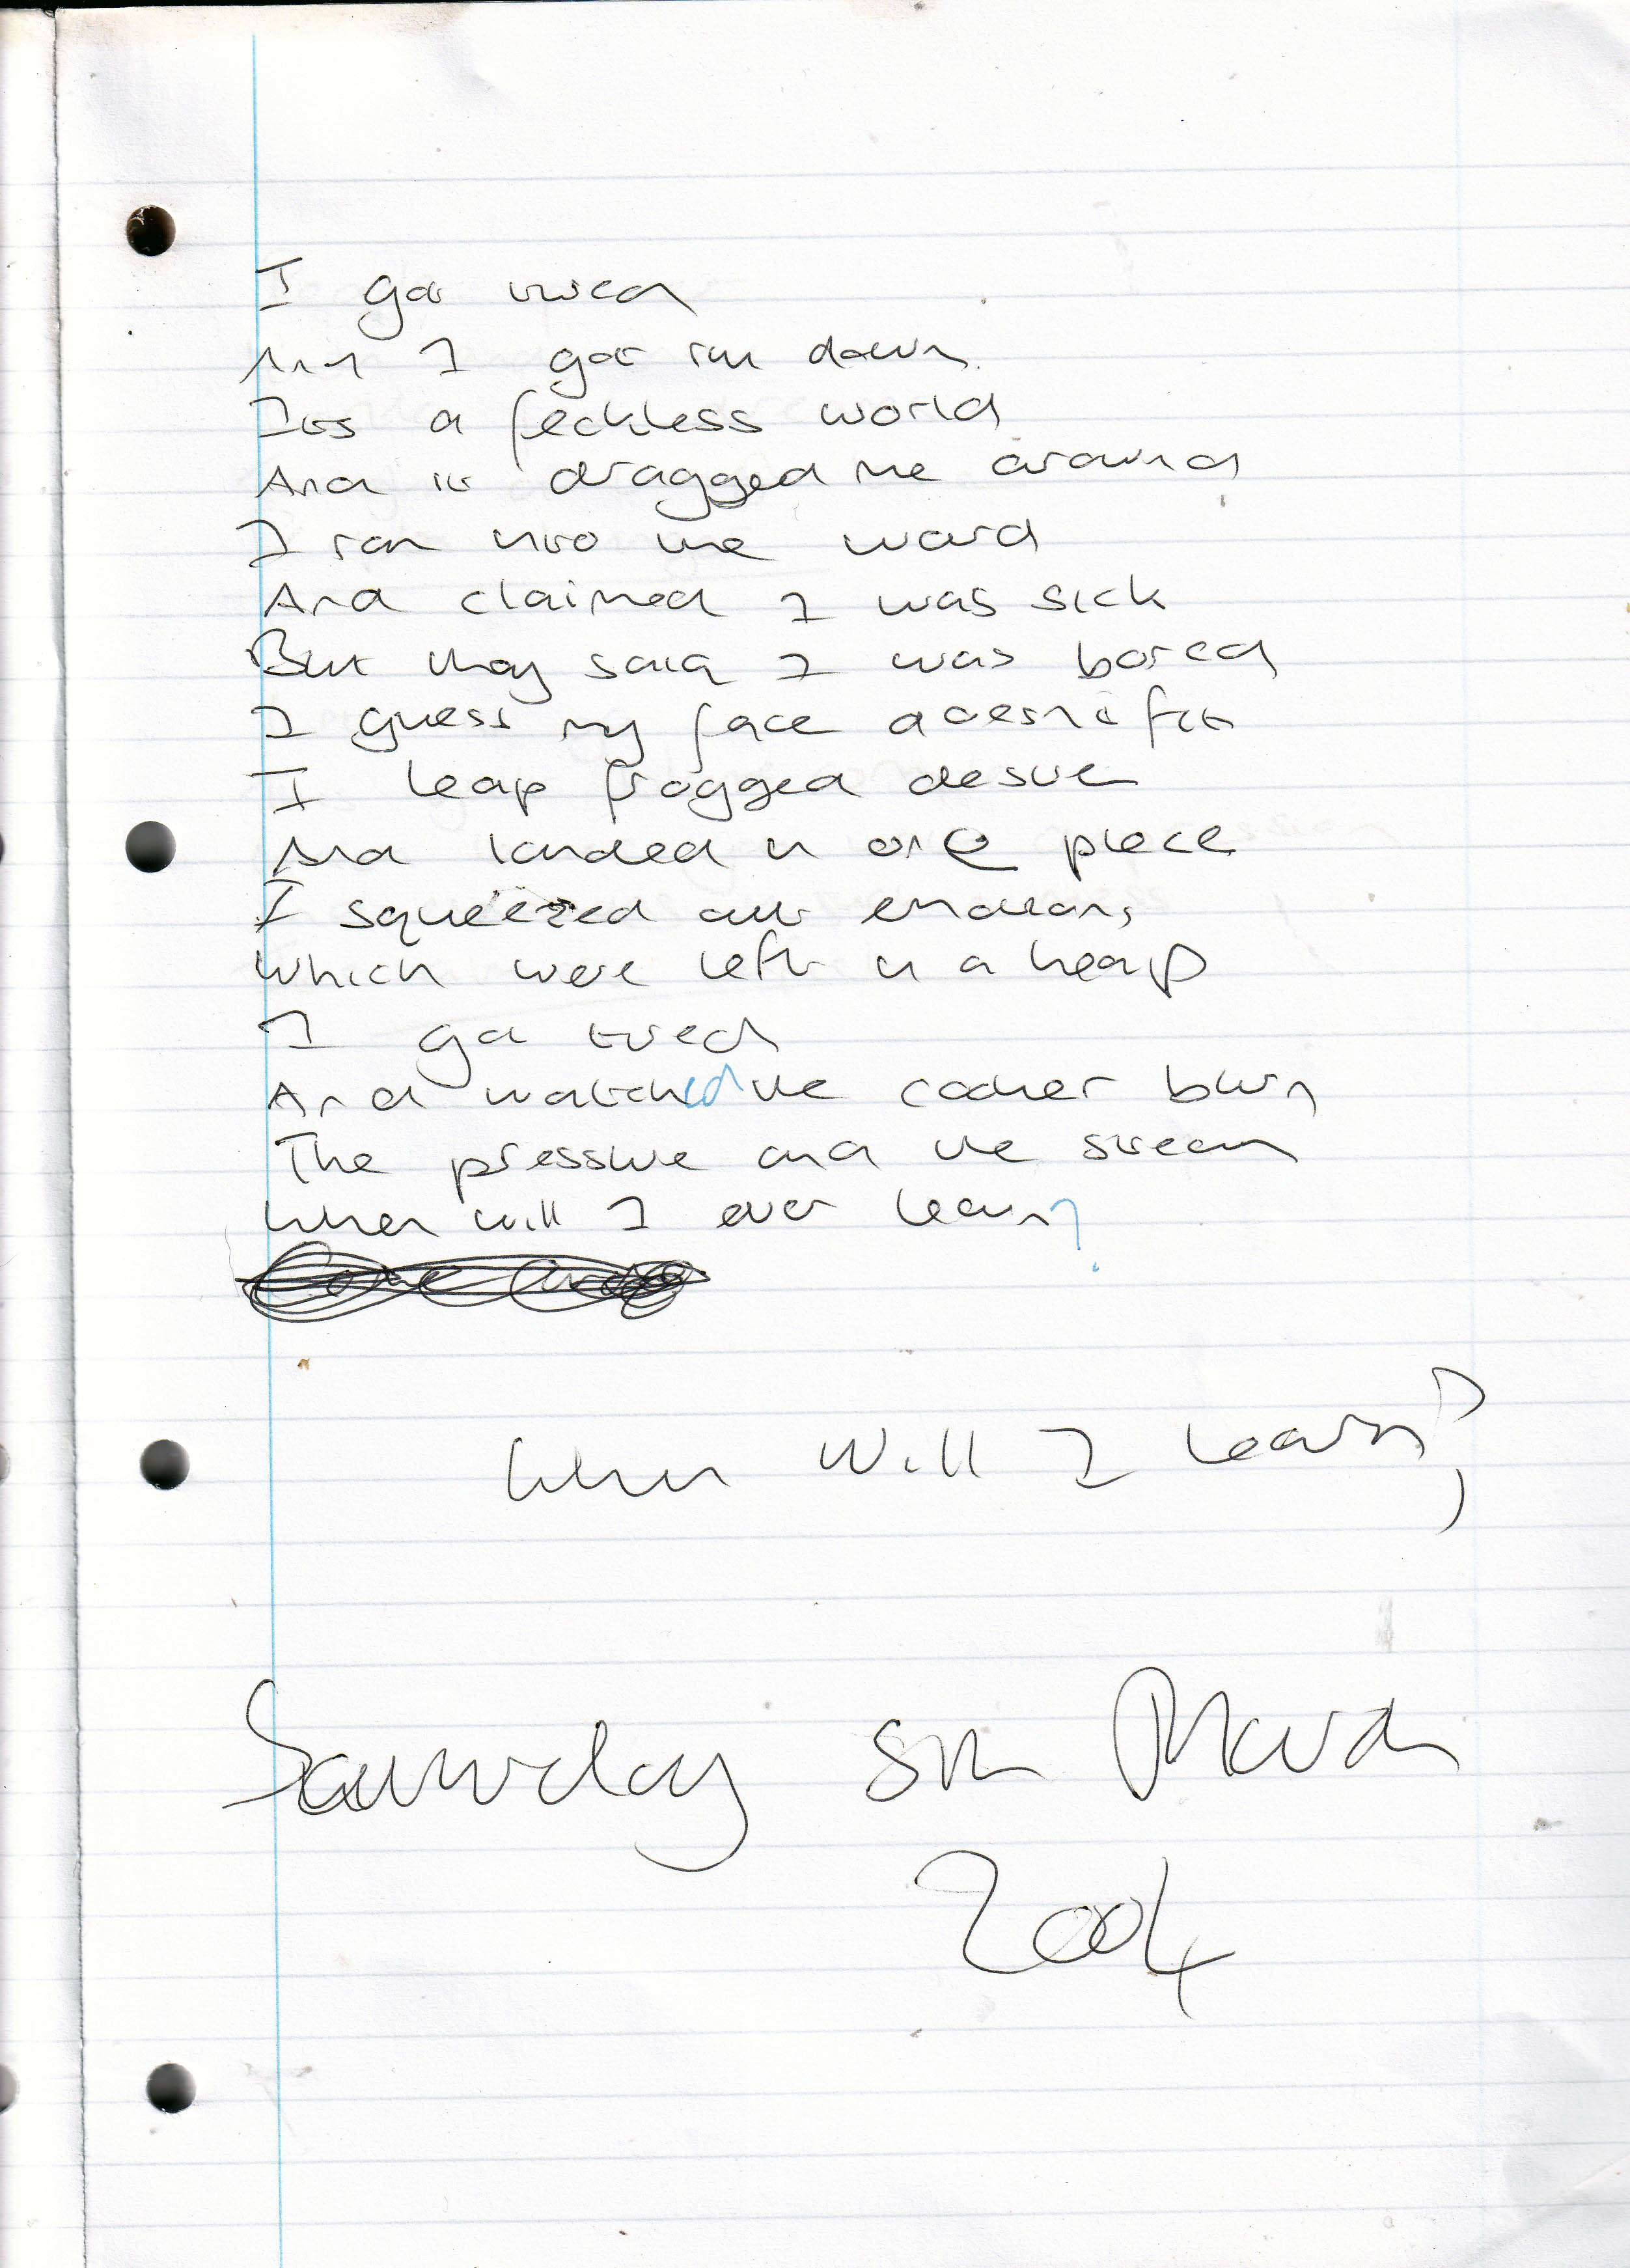 I got tired
And I got run down
Its a feckless world
And it dragged me around
I ran into the ward
And claimed I was sick
But they said I was bored
I guess my face doesn't fit
I leap frogged desire
And landed in one piece
I squeezed out emotions
Which were left in a heap
I got tired
And watched the cooker burn
The pressure and the steam
When will I ever learn?
When will I learn?
Saturday 5th March
2004